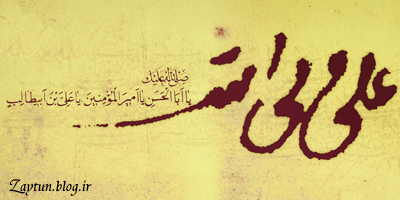 علی ولی الله
صلی الله علیک
یا أبا الحسن یا أمیر المؤمنین یا علی بن أبیطالب
Zaptun.blog.ir